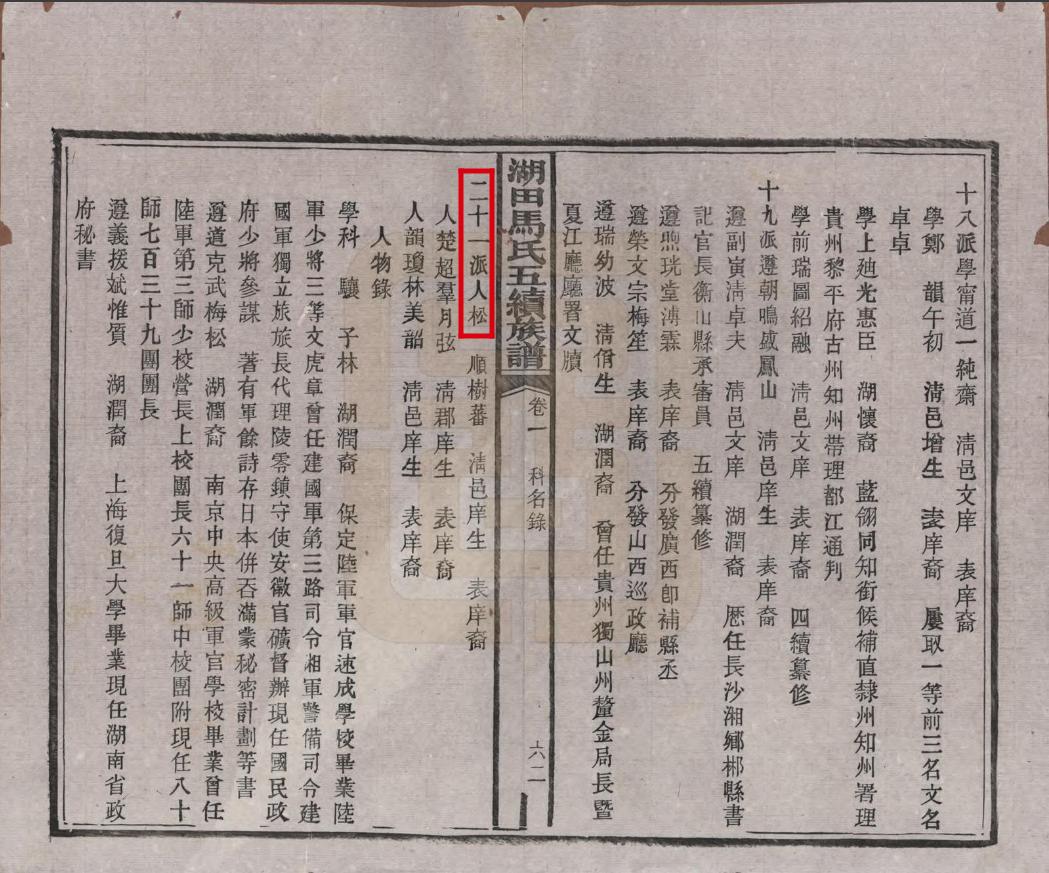 十八派學甯道一純齋　清邑文庠　表庠裔
學鄭　韻午初　清邑增生　表庠裔　屢取一等前三名文名
卓卓
學上廸光惠臣　湖懷裔　藍翎同知銜候補直隸州知州署理
貴州黎平府古州知州帶理都江通判
學前瑞圖紹融　清邑文庠　表庠裔　四續纂修
十九派遵朝鳴盛鳳山　清邑庠生　表庠裔
遵副寅清卓夫　清邑文庠　湖潤裔　歷任長沙湘鄉郴縣書
記官長衡山縣承審員　五續纂修
遵煦珖堂溥霖　表庠裔　分發廣西卽補縣丞
遵榮文宗梅笙　表庠裔　分發山西巡政廳
遵瑞幼波　清佾生　湖潤裔　曾任貴州獨山州釐金局長暨
夏江廳廳署文牘
湖田馬氏五續族譜　卷一　科名錄　六二
二十一派人松　順樹蕃　清邑庠生　表庠裔
人楚超羣月弦　清郡庠生　表庠裔
人韻瓊林美韶　清邑庠生　表庠裔
人物錄
學科　驤　子林　湖潤裔　保定陸軍軍官速成學校畢業陸
軍少將三等文虎章曾任建國軍第三路司令湘軍警備司令建
國軍獨立旅旅長代理陵零鎮守使安徽官礦督辦現任國民政
府少將參謀　著有軍餘詩存日本併吞滿蒙秘密計劃等書
遵道克武梅松　湖潤裔　南京中央高級軍官學校畢業曾任
陸軍第三師少校營長上校團長六十一師中校團附現任八十
師七百三十九團團長
遵義援斌惟質　湖潤裔　上海復旦大學畢業現任湖南省政
府秘書